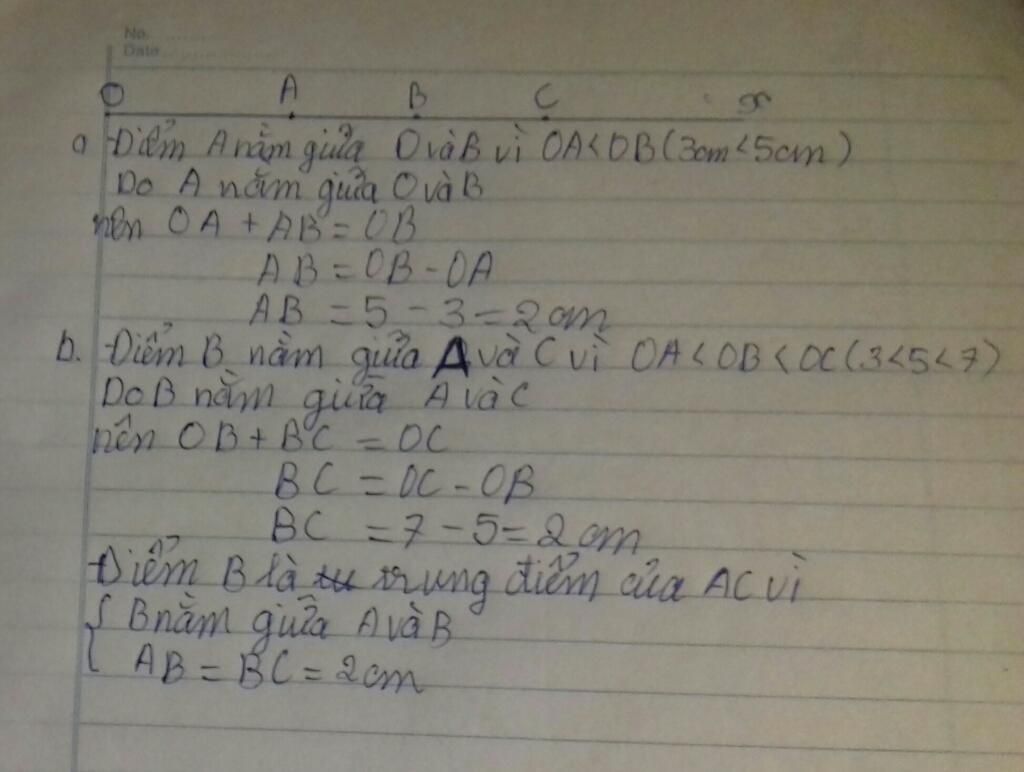 No.
Date
O A B C x
a Điểm A nằm giữa O và B vì OA < OB (3cm < 5cm)
Do A nằm giữa O và B
nên OA + AB = OB
AB = OB - OA
AB = 5 - 3 = 2 cm
b. Điểm B nằm giữa A và C vì OA < OB < OC (3 < 5 < 7)
Do B nằm giữa A và C
nên OB + BC = OC
BC = OC - OB
BC = 7 - 5 = 2 cm
Điểm B là trung điểm của AC vì
{ B nằm giữa A và B
AB = BC = 2 cm